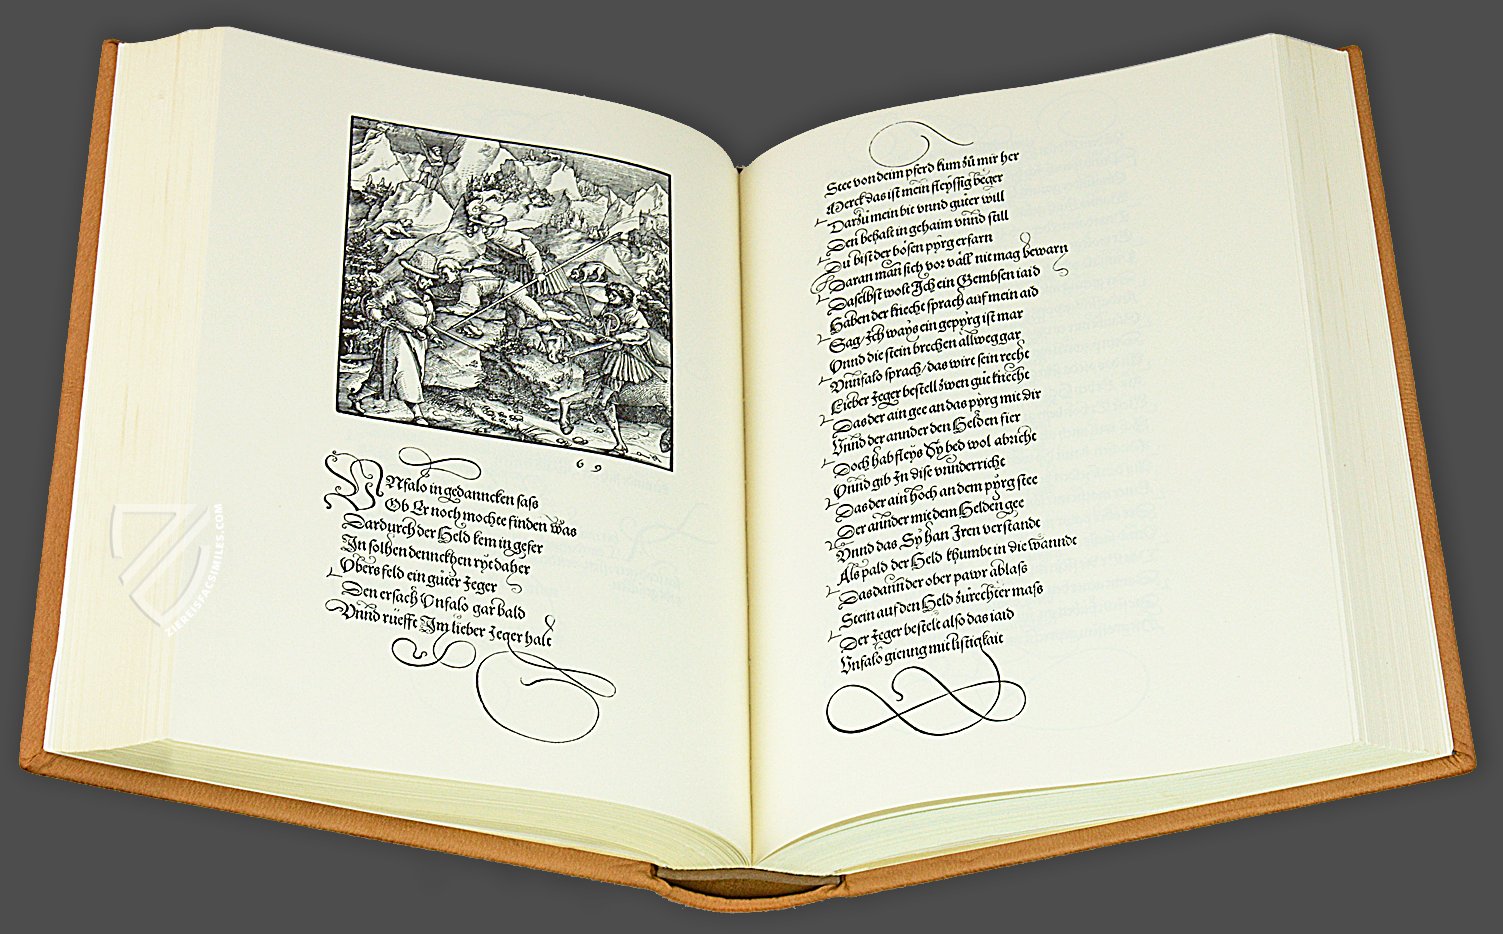 69
VNfalo in gedanncken sass
Ob Er noch mochte finden was
Dardurch der Held kem in gefer
In solhen dennckhen ryt daher
Vbers feld ein gůter Jeger
Den ersach Vnfalo gar bald
Vnnd rüefft Im lieber Jeger halt
Stee von deim pferd kum zů mir her
Merck das ist mein fleyssig beger
Darzů mein bit vnnd gůter will
Den behalt in gehaim vnnd still
Du bist der bösen pyrg erfarn
Daran man sich vor väll nit mag bewarn
Daselbst wolt Ich ein Gembsen iaid
Haben der knecht sprach auf mein aid
Sag/Ich ways ein gepyrg ist mar
Vnnd die stein brechen allweg gar
Vnnfalo sprach/das wirt sein recht
Lieber Jeger bestell zwen gůt knecht
Das der ain gee an das pyrg mit dir
Vnnd der annder den Helden fier
Doch hab fleys Sy bed wol abricht
Vnnd gib In dise vnnderricht
Das der ain hoch an dem pyrg stee
Der annder mit dem Helden gee
Vnnd das Sy han Iren verstandt
Als pald der Held khumbt in die wänndt
Das dann der ober pawr ablass
Stein auf den Held zů rechter mass
Der Jeger bestelt also das iaid
Vnfalo gienng mit listigkait
ZIEREISFACSIMILES.COM